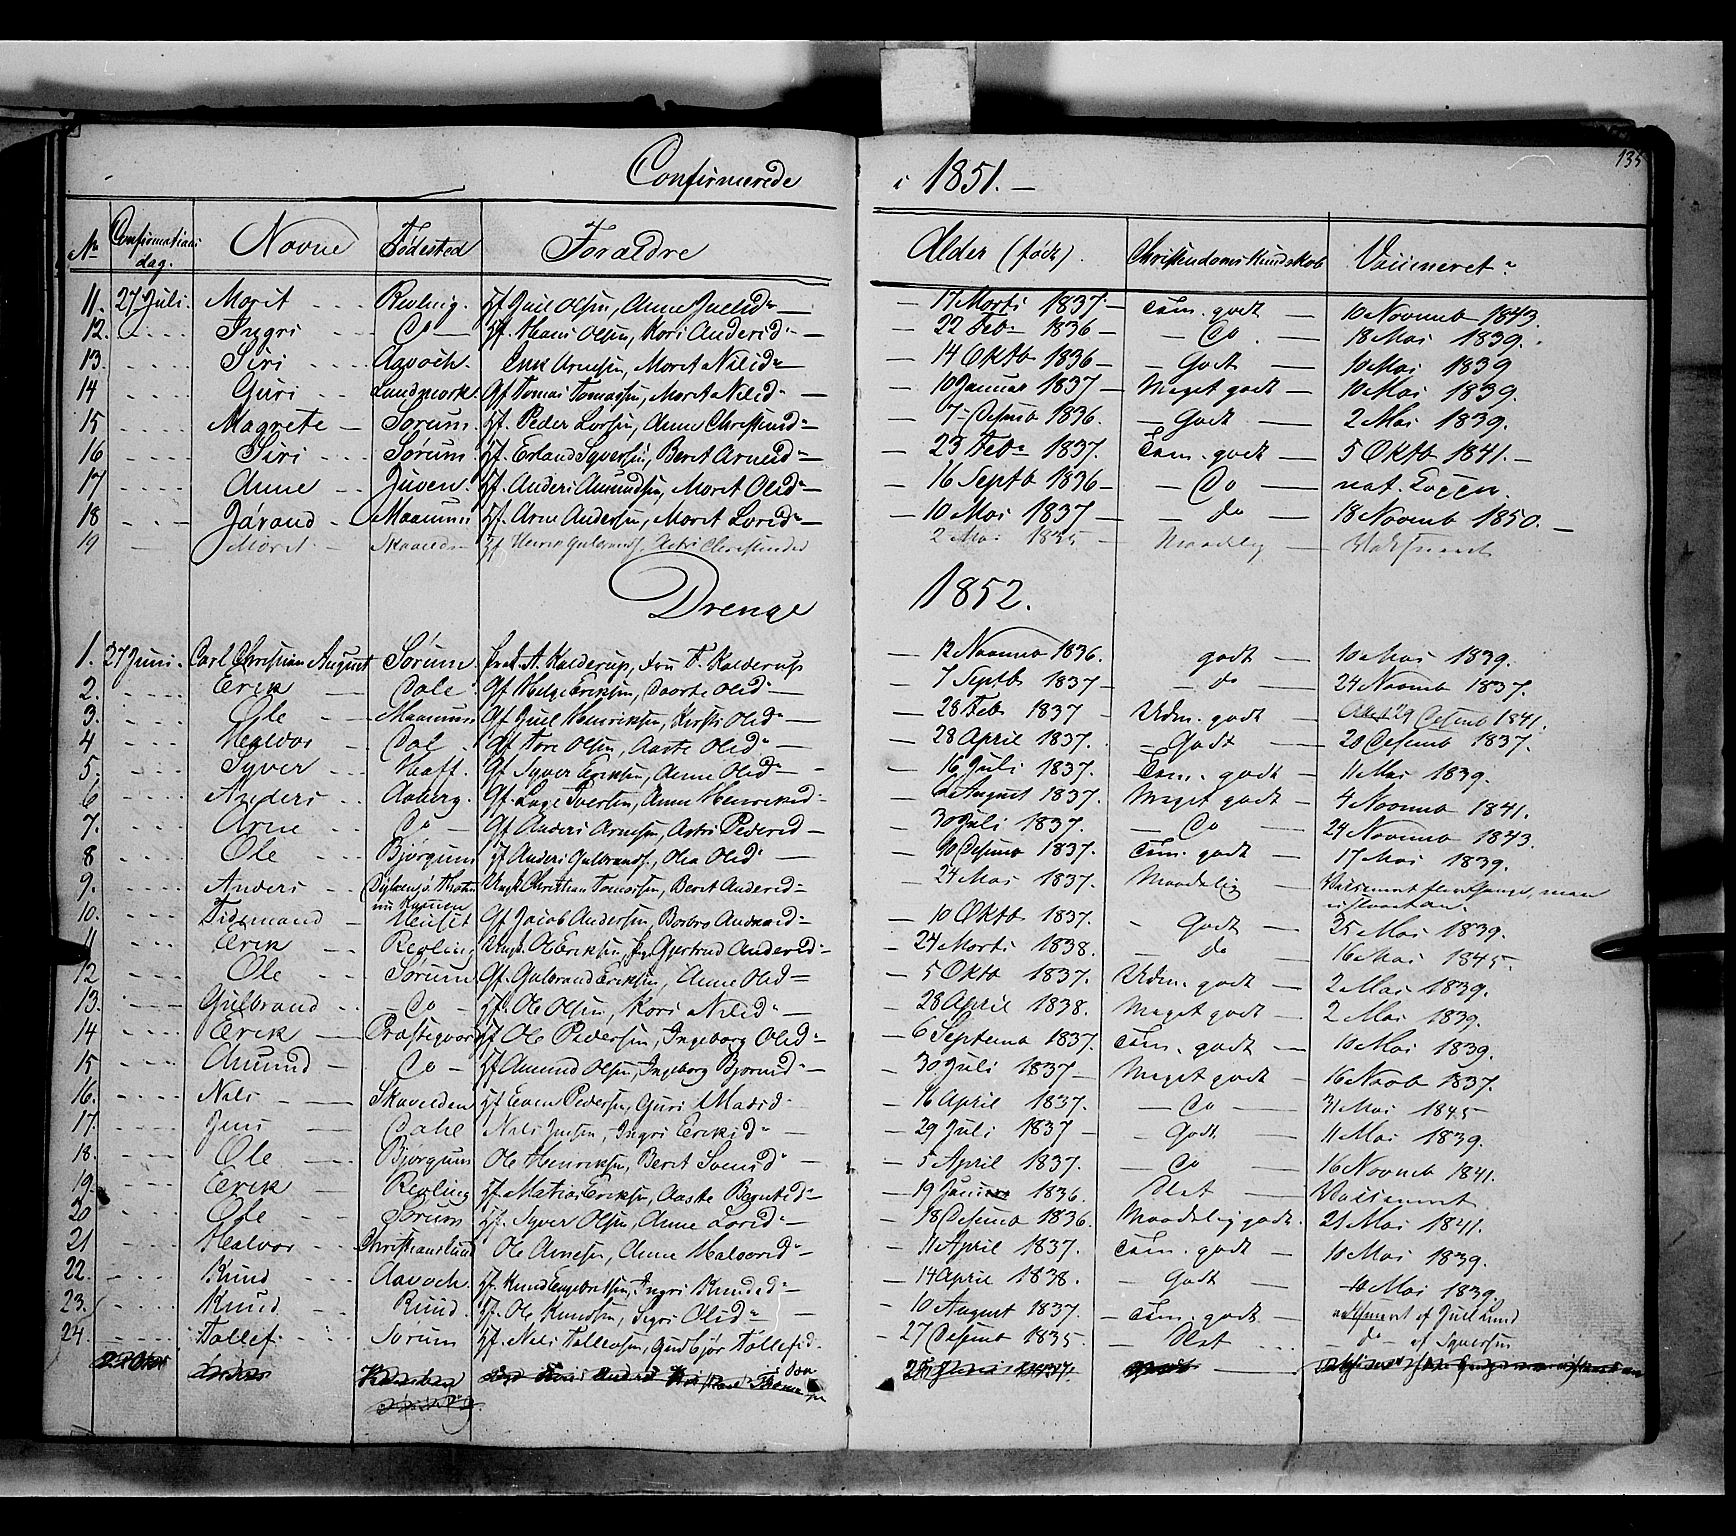 135
Confirmerede i 1851.-
No Confirmations dag. Navne Fødested Forældre Alder (født). Christendoms Kundskab Vaccineret?
11. 27 Juli. Marit Revling. Hf. Juel Olsen, Anne Juelsd. — 17 Marts 1837 — Tem. godt — 10 Novemb 1843.
12. Ingri Do Hf. Hans Olsen, Kari Andersd. — 22 Feb. 1836 — Do. — 18 Mai 1839.
13. Siri Aavoch. Erik Arnesen, Marit Nilsd. — 14 Oktb 1836 — Godt — 10 Mai 1839
14 Guri Lundmork. Gf Tomas Tomassen, Marit Nilsd — 10 Januar 1837 — Meget godt — 10 Mai 1839.
15 Magrete Sorum. Hf. Peder Larsen, Anne Christensd. — 7 Desemb 1836. — Godt — 2 Mai 1839.
16 Siri Sørum Hf. Erland Syversen, Berit Arnesd. — 23 Feb. 1837. Tem. godt — 5 Oktb 1841. —
17 Anne Juven. Hf. Anders Amundsen, Marit Olsd. — 16 Septb 1836 — Do — nat. Kopper.
18 Jørand Hf. Arne Andersen, Marit Larsd. — 10 Mai 1837 — do — 18 Novemb 1850. —
19 Marit Hf Henrik Gulbrands. Astri Christensd 2 Mai 1835 — Maadelig —
Drenge 1852.
1. 27 Juni. Carl Christian August Sørum A. Kalderup, Fru F. Kalderup — 12 Novemb 1836. godt — 10 Mai 1839.
2. Erik Dale Gf Helge Eriksen, Olsd. — 7 Septb 1837 — do — 24 Novemb 1837.
3. Ole Gf Juel Henriksen, Kirsti Olsd. — 28 Feb 1837 — Udm. godt — 29 Desemb 1841.
4 Halvor Dal Gf Tore Olsen, Aaste Olsd. — 28 April 1837. — Godt — 20 Desemb 1837.
5. Syver Haff. Gf Syver Eriksen, Anne Olsd. — 16 Juli 1837. Tem. godt — 11 Mai 1839.
6 Anders Aaberg. Gf. Lage Iversen, Anne Henriksd. — August 1837. Meget godt — 4 Novemb 1841.
7. Arne Do Gf Anders Arnesen, Astri Pedersd — 30 Juli 1837. — Do — 24 Novemb 1843.
8 Ole Bjørgum Gf Anders Gulbrands., Olea Olsd. — 10 Desemb 1837. Tem. godt — 17 Mai 1839.
9. Anders Ungk Christian Tomassen, Berit Andersd. — 24 Mai 1837. Maadelig
10. Tidemand Heuset Gf Jacob Andersen, Barbro Andersd. — 10 Oktb 1837. — Godt — 25 Mai 1839.
11 Erik Revling Ungk. Ole Eriksen, Pg. Gjertrud Andersd. — 24 Marts 1838. — do — 16 Mai 1845.
12 Ole Sørum Gf. Gulbrand Eriksen, Anne Olsd — 5 Oktb 1837. Udm. godt — 2 Mai 1839.
13. Gulbrand Do Hf. Ole Olsen, Kari Nilsd. — 28 April 1838. Meget godt — 2 Mai 1839.
14 Erik Hf Ole Pedersen, Ingeborg Olsd. — 6 Septemb 1837. Tem. godt — 10 Mai 1839.
15 Amund Do Hf Amund Olsen, Ingeborg Bjørnsd. — 30 Juli 1837 — Meget godt — 16 Novb 1837.
16. Nils Skavelden Hf Even Pedersen, Guri Madsd. — 16 April 1837. — Do — 31 Mai 1845
17. Jens Dale Nils Jensen, Ingri Eriksd. — 29 Juli 1837 — Godt — 11 Mai 1839.
18. Ole Bjørgum Ole Henriksen, Berit Svensd — 5 April 1837. — Do — 16 Novemb 1841.
19. Erik Revling Hf. Matias Eriksen, Aaste Berntsd. — 19 1836. Slet —
20 Ole Sorum Hf. Syver Olsen, Anne Larsd. — 18 Desemb 1836. Maadelig godt. 21 Mai 1841.
21 Halvor Christianslund Ole Arnesen, Anne Halvorsd. — 11 April 1837. Tem. godt — 10 Mai 1839.
22. Knud Aavoch Hf. Knud Engebretsen, Ingri Knudsd. — 14 April 1838. — Godt — 10 Mai 1839.
23. Knud Ruud. Hf. Ole Knudsen, Sigri Olsd. — 10 August 1837. — Tem. godt — af Juellund
24. Tollef. Sorum Hf. Nils Tollevsen, Gudbjør Tollefsd. — 27 Desemb 1835 — Slet — do — af Syversen